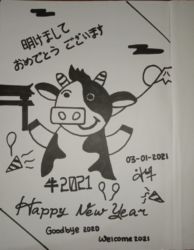 明けまして
おめでとう ございます
03-01-2021
牛2021
Happy New Year
Goodbye 2020
Welcome 2021